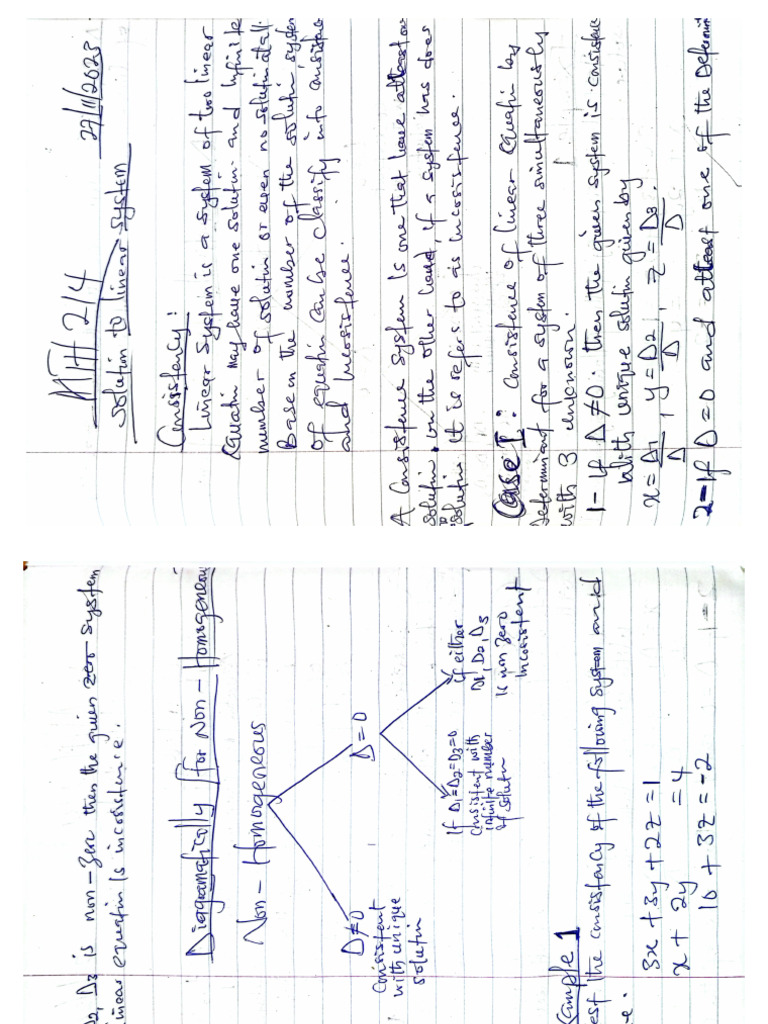 MTH 214
27/11/2023
Solutin to linear system
Consistancy:
Linear System is a system of two linear
Equatin may have one solutin and Infinite
number of solutin or even no solutin at all.
Base on the number of the solutin system
of equatin can be classify into consistence
and Incosistence.
A Consistence system is one that have atleast one
solutin. on the other hand, if a system has does
solutin. it is refers to as incosistence.
Case I: Consistence of linear Equatin by
determinant for a system of three simultaneously
with 3 unknown.
1- If Δ ≠ 0. then the given system is consistence
with unique solutin given by
x = Δ1/Δ, y = Δ2/Δ, z = Δ3/Δ.
2- If Δ = 0 and atleast one of the Determin
Δ2, Δ3 is non-zero then the given zero system
linear equatin is incosistence.
Diagramatically for Non-Homogeneous
Non-Homogeneous
Δ≠0
Consistent
with unique
solutin
Δ = 0
If Δ1=Δ2=Δ3=0
Consistent with
infinite number
of solutin
If either
Δ1, Δ2, Δ3
Is non zero
Incosistent
Example 1
est the consistancy of the following system and
3x + 3y + 2z = 1
x + 2y = 4
10 + 3z = -2